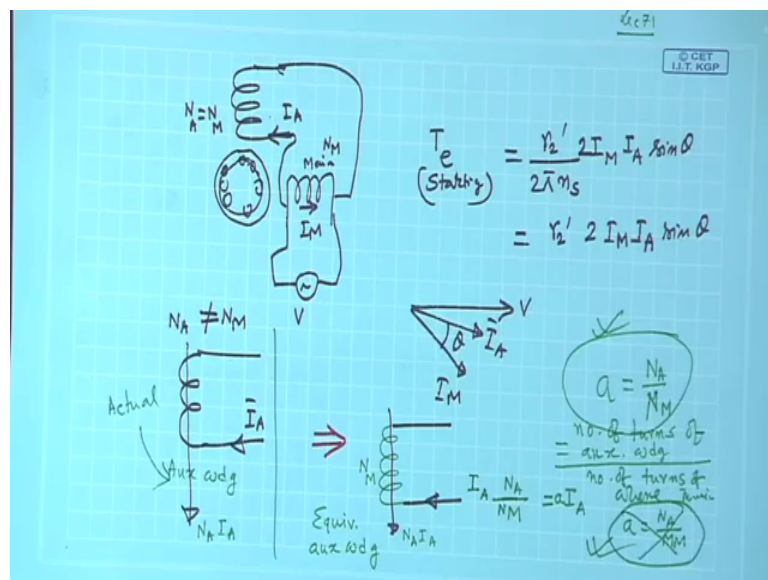 Lec 71
© CET
I.I.T. KGP
N_A = N_M
I_A
N_M
Main
I_M
V
T_e (Starting) = r_2' / 2π n_s 2 I_M I_A sin θ
= r_2' 2 I_M I_A sin θ
N_A ≠ N_M
Actual
Ī_A
Aux wdg
N_A I_A
V
θ
Ī_A
I_M
⇒
N_M
I_A N_A / N_M = a I_A
N_A I_A
Equiv.
aux wdg
a = N_A / N_M
= no. of turns of
aux. wdg
no. of turns of
a = N_A / N_M